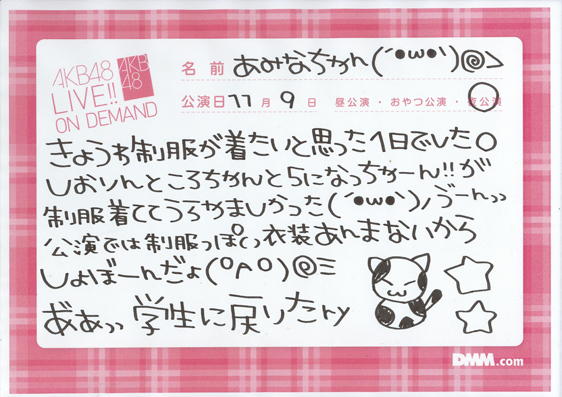 AKB48
LIVE!!
ON DEMAND
AKB
48
名前 あみなちゃん(´ωฺ`)@
公演日 11月9日 昼公演・おやつ公演・夜公演
きょうゎ制服が着たいと思った1日でした○
しおりんところちゃんと5になっちゃーん!!が
制服着ててうらやましかった(´•ω•`)ノゔーんっっ
公演では制服っぽぃ衣装あんまないから
しょぼーんだょ(OΛO)@ミ
あ゛ぁっっ 学生に戻りたぃy
DMM.com